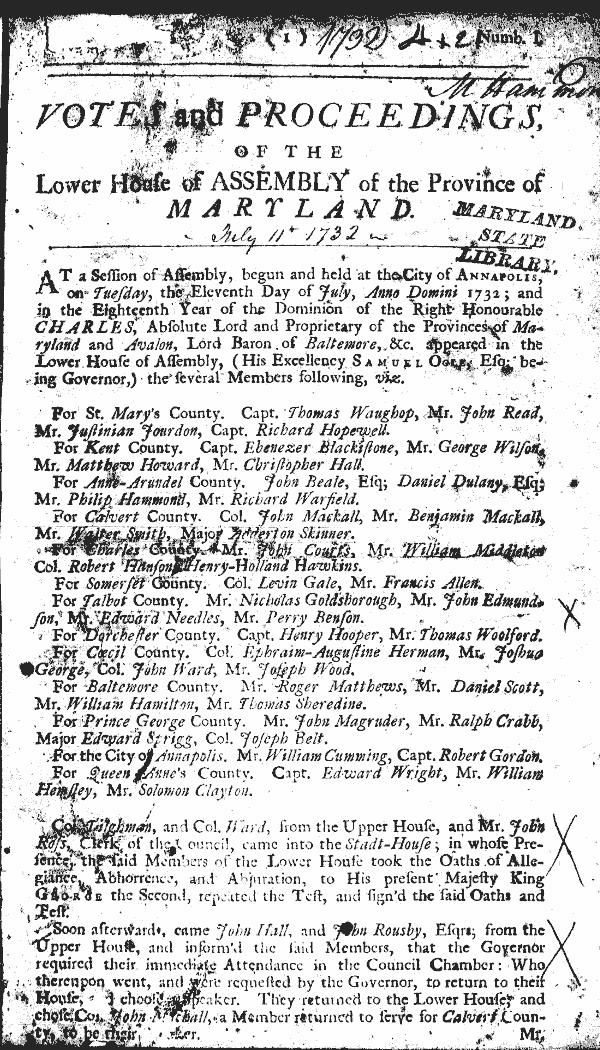 ( 1 ) 1732 Numb. I.
VOTES and PROCEEDINGS,
OF THE
Lower House of ASSEMBLY of the Province of
MARYLAND.
MARYLAND
STATE
LIBRARY.
July 11th 1732
AT a Session of Assembly, begun and held at the City of ANNAPOLIS,
on Tuesday, the Eleventh Day of July, Anno Domini 1732; and
in the Eighteenth Year of the Dominion of the Right Honourable
CHARLES, Absolute Lord and Proprietary of the Provinces of Ma-
ryland and Avalon, Lord Baron of Baltemore, &c. appeared in the
Lower House of Assembly, (His Excellency SAMUEL OGLE, Esq; be-
ing Governor,) the several Members following, viz.
For St. Mary's County. Capt. Thomas Waughop, Mr. John Read,
Mr. Justinian Jourdon, Capt. Richard Hopewell.
For Kent County. Capt. Ebenezer Blackistone, Mr. George Wilson,
Mr. Matthew Howard, Mr. Christopher Hall.
For Anne-Arundel County. John Beale, Esq; Daniel Dulany, Esq;
Mr. Philip Hammond, Mr. Richard Warfield.
For Calvert County. Col. John Mackall, Mr. Benjamin Mackall,
Mr. Walter Smith, Major Adderton Skinner.
For Charles County. Mr. John Courts, Mr. William Middleton
Col. Robert Hanson, Henry-Holland Hawkins.
For Somerset County. Col. Levin Gale, Mr. Francis Allen.
For Talbot County. Mr. Nicholas Goldsborough, Mr. John Edmund-
son, Mr. Edward Needles, Mr. Perry Benson.
For Dorchester County. Capt. Henry Hooper, Mr. Thomas Woolford.
For Cæcil County. Col. Ephraim-Augustine Herman, Mr. Joshua
George, Col. John Ward, Mr. Joseph Wood.
For Baltemore County. Mr. Roger Matthews, Mr. Daniel Scott,
Mr. William Hamilton, Mr. Thomas Sheredine.
For Prince George County. Mr. John Magruder, Mr. Ralph Crabb,
Major Edward Sprigg, Col. Joseph Belt.
For the City of Annapolis. Mr. William Cumming, Capt. Robert Gordon.
For Queen Anne's County. Capt. Edward Wright, Mr. William
Hemsley, Mr. Solomon Clayton.
Col. Tilghman, and Col. Ward, from the Upper House, and Mr. John
Ross, Clerk of the Council, came into the Stadt-House; in whose Pre-
sence, the said Members of the Lower House took the Oaths of Alle-
giance, Abhorrence, and Abjuration, to His present Majesty King
GEORGE the Second, repeated the Test, and sign'd the said Oaths and
Test.
Soon afterwards, came John Hall, and John Rousby, Esqrs; from the
Upper House, and inform'd the said Members, that the Governor
required their immediate Attendance in the Council Chamber: Who
thereupon went, and were requested by the Governor, to return to their
House, choose Speaker. They returned to the Lower House, and
chose Col. John Mackall, a Member returned to serve for Calvert Coun-
ty, to be their
Mr.